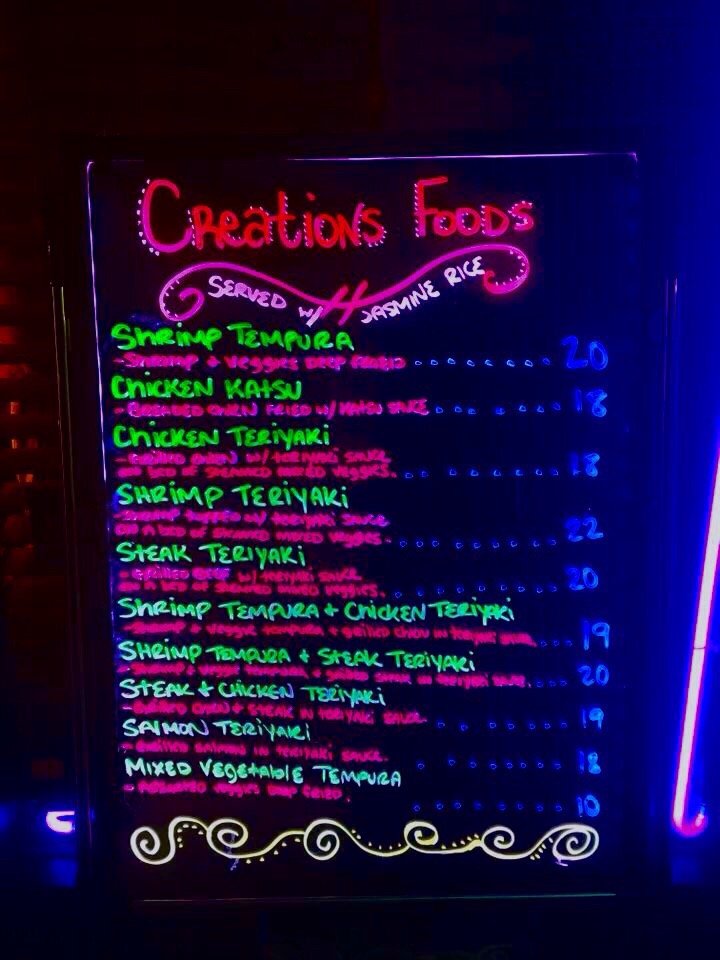 Creations Foods
SERVED w/ JASMINE RICE
Shrimp Tempura
- Shrimp + Veggies Deep Fried ............ 20
Chicken Katsu
- Breaded Chkn Fried w/ Katsu Sauce ............ 18
Chicken Teriyaki
- Grilled Chkn w/ teriyaki sauce
on a bed of steamed mixed veggies. ............ 18
Shrimp Teriyaki
- Shrimp topped w/ teriyaki sauce
on a bed of steamed mixed veggies. ............ 22
Steak Teriyaki
- Grilled Beef w/ teriyaki sauce
on a bed of steamed mixed veggies. ............ 20
Shrimp Tempura + Chicken Teriyaki
- Shrimp + veggie tempura + grilled chkn in teriyaki sauce ..... 19
Shrimp Tempura + Steak Teriyaki
- Shrimp + veggie tempura + grilled steak in teriyaki sauce ..... 20
Steak + Chicken Teriyaki
- Grilled Chkn + steak in teriyaki sauce ............ 19
Salmon Teriyaki
- Grilled salmon in teriyaki sauce. ............ 18
Mixed Vegetable Tempura
- Assorted veggies deep fried. ............ 10